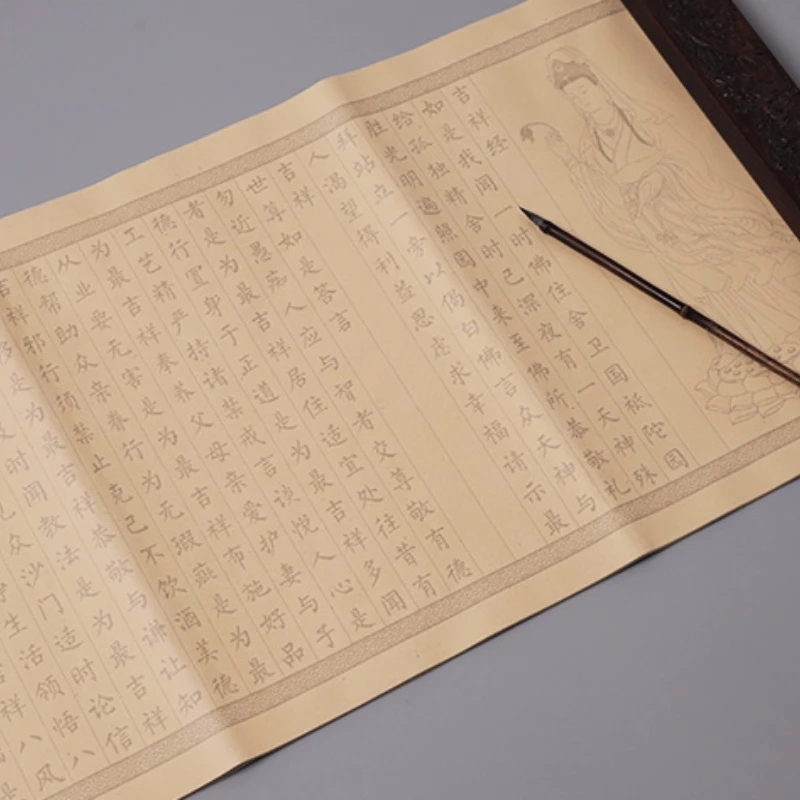 吉祥经
如是我闻一时佛住舍卫国祗陀园
给孤独精舍时已深夜有一天神殊
胜光明遍照园中来至佛所恭敬礼
拜站立一旁以偈白佛言众天神与
人渴望得利益思虑求幸福请示最
吉祥
世尊如是答言
勿近愚痴人应与智者交尊敬有德
者是为最吉祥居住适宜处往昔有
德行置身于正道是为最吉祥多闻
工艺精严持诸禁戒言谈悦人心是
为最吉祥奉养父母亲爱护妻与子
从业要无害是为最吉祥布施好品
德帮助众亲眷行为无瑕疵是为最
吉祥邪行须禁止克己不饮酒美德
是为最吉祥恭敬与谦让知
时闻教法是为最吉祥
众沙门适时论信
生活领悟八
祥八风
是